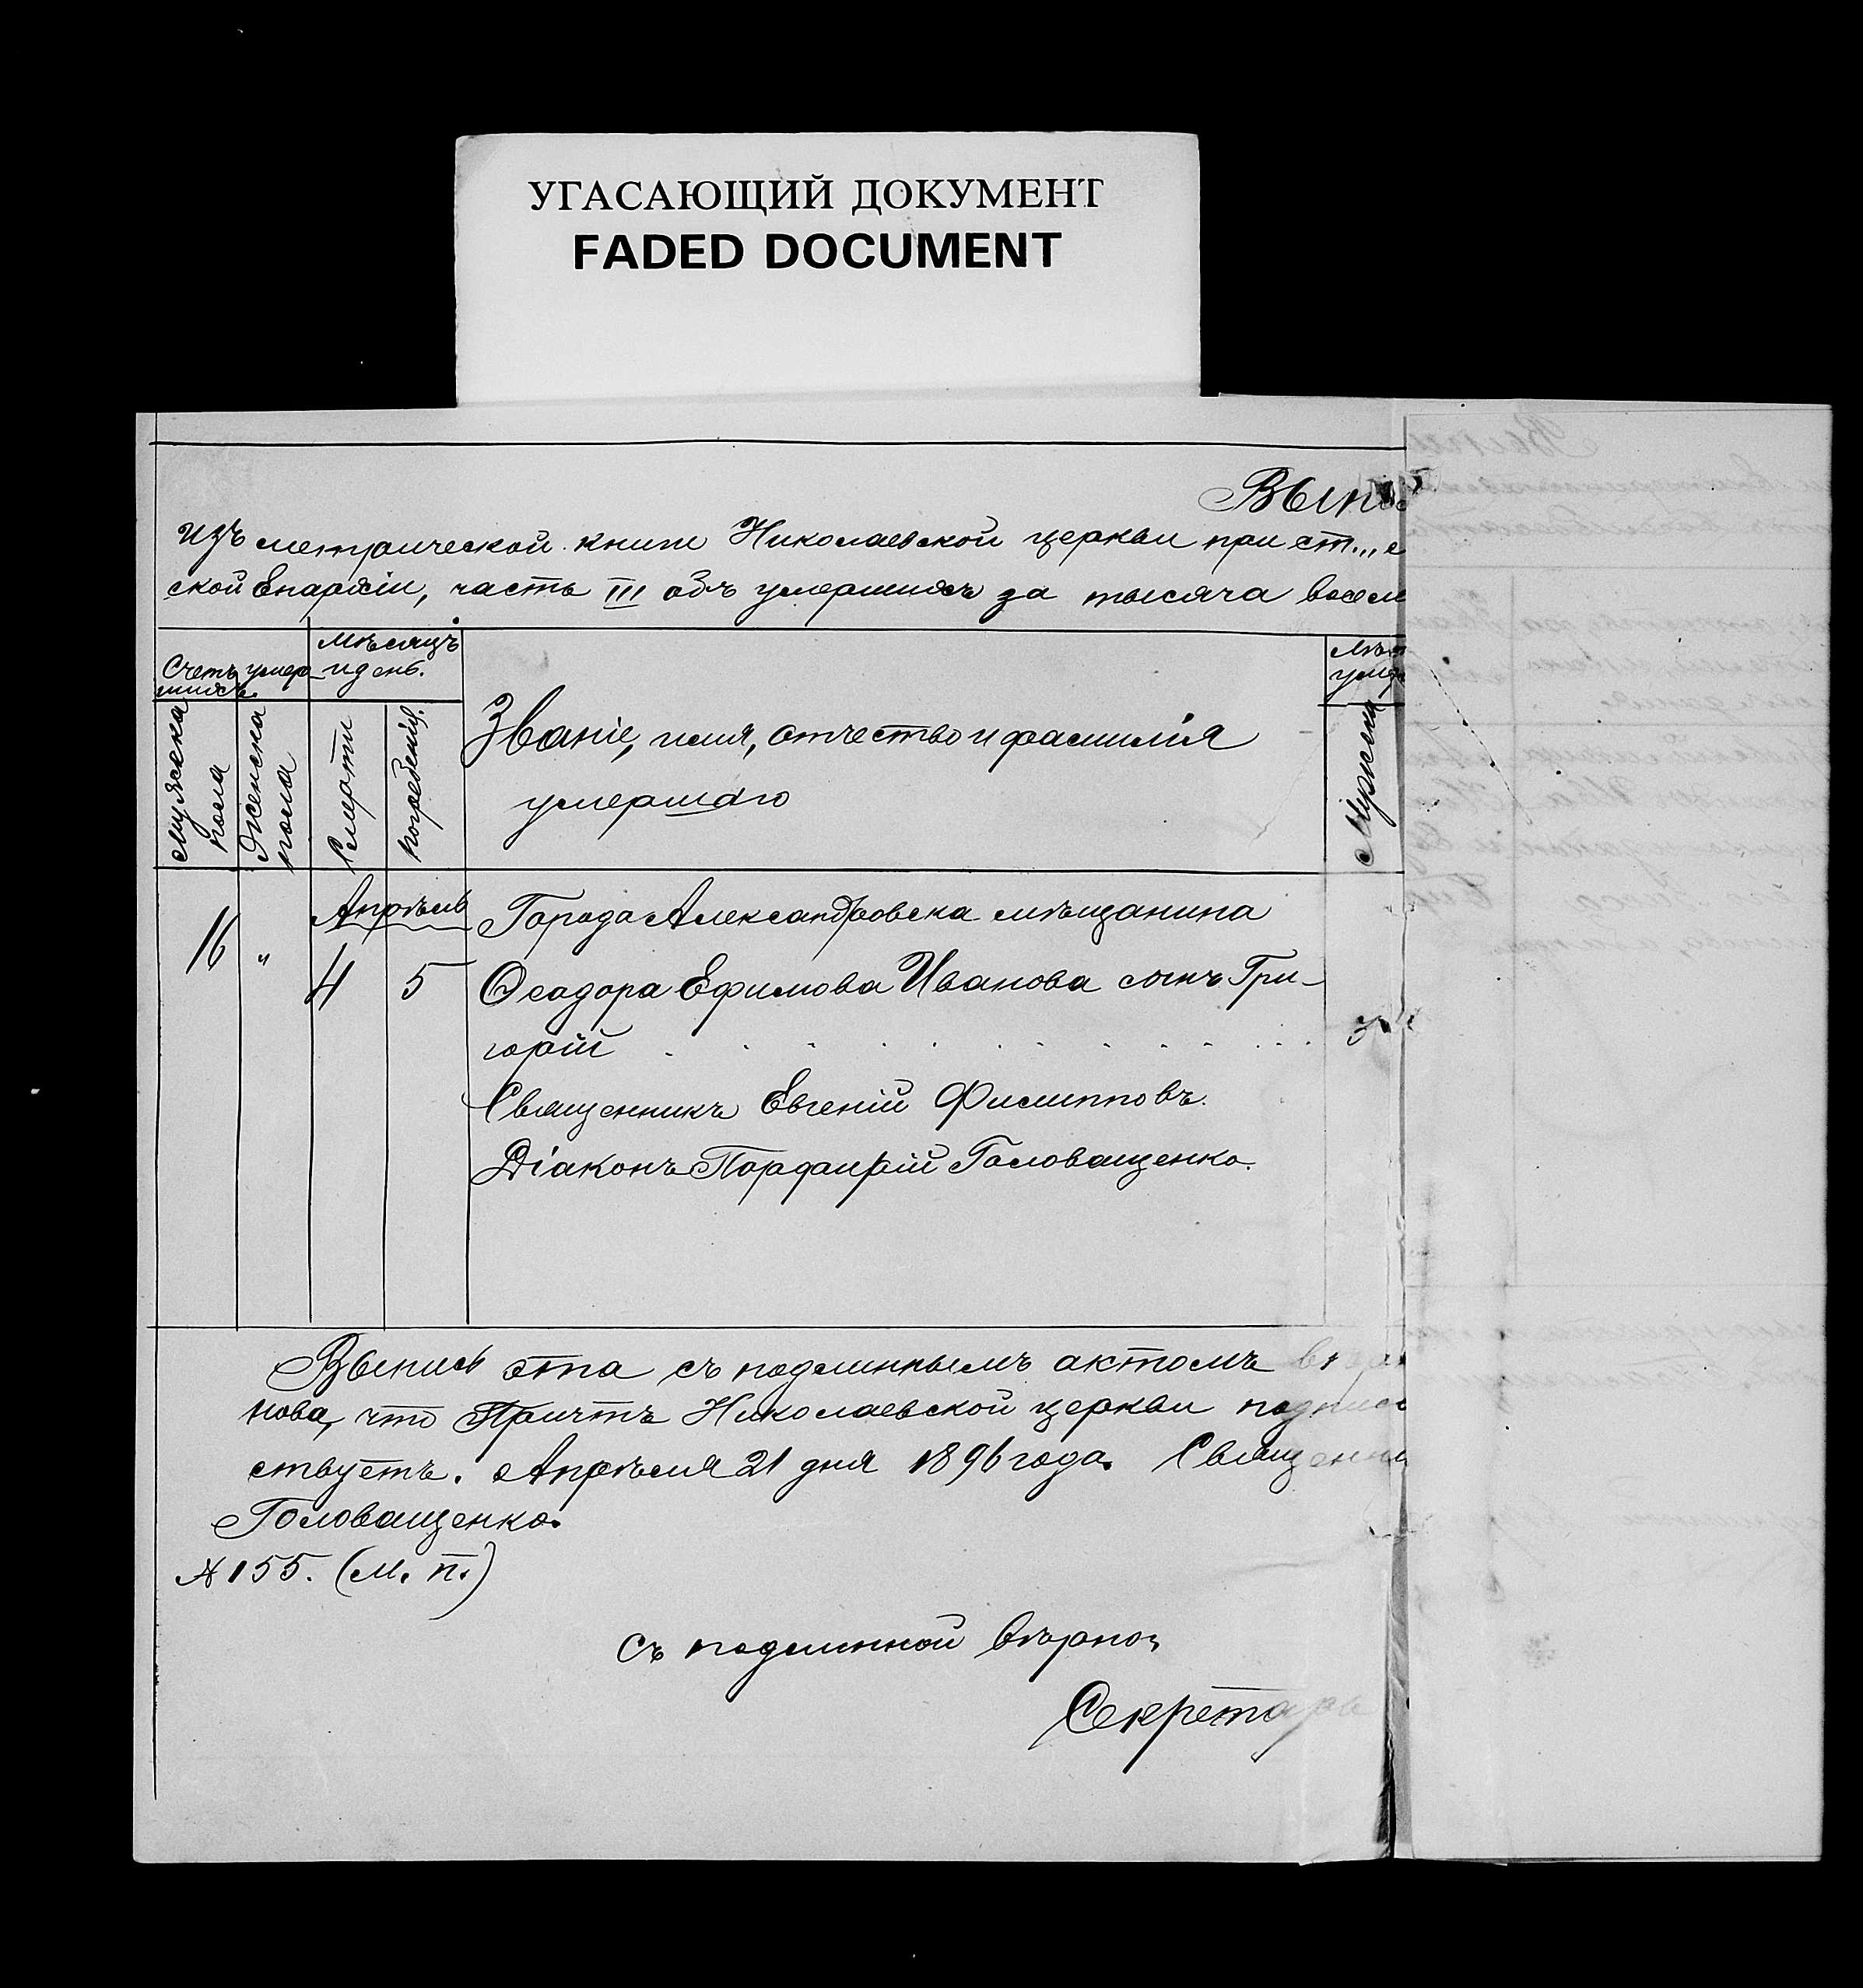 УГАСАЮЩИЙ ДОКУМЕНТ
FADED DOCUMENT
Выпис
изъ метрической книги Николаевской церкви при ст...
ской Епархіи, часть III объ умершихъ за тысяча восем
Счетъ умер-
шихъ.
Мѣсяцъ
и день.
мужеска
пола
Женска
пола
Смерти
погребенія.
Званіе, имя, отчество и фамилія
умершаго
Мужеска
16 „
Апрѣль
4 5
Города Александровска мѣщанина
Ѳеодора Ефимова Иванова сынъ Гри-
горій . . . . . . . . . . . .
Священникъ Евгеній Филипповъ.
Діаконъ Порфирій Головащенко.
Выпись эта съ подлиннымъ актомъ
нова, что Причтъ Николаевской церкви подпис
ствуетъ. Апрѣля 21 дня 1896 года. Священни
Головащенко.
№ 155. (М. п.)
Съ подлинной вѣрно:
Секретарь